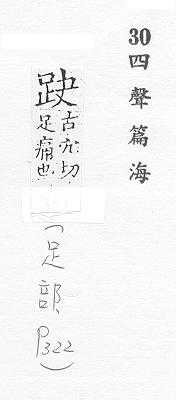 30四聲篇海
趹古穴切
足痛也
(足部, P322)